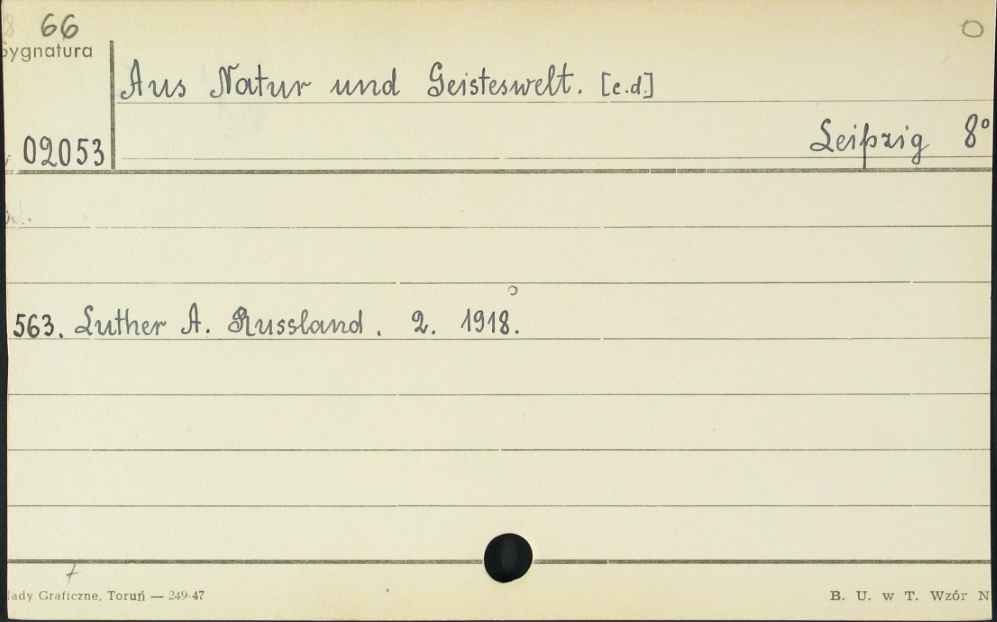 66
Sygnatura
Aus Natur und Geisteswelt. [c.d.]
02053
Leipzig 8°
563. Luther A. Russland. 2. 1918.
łady Graficzne, Toruń — 249-47
B. U. w T. Wzór N